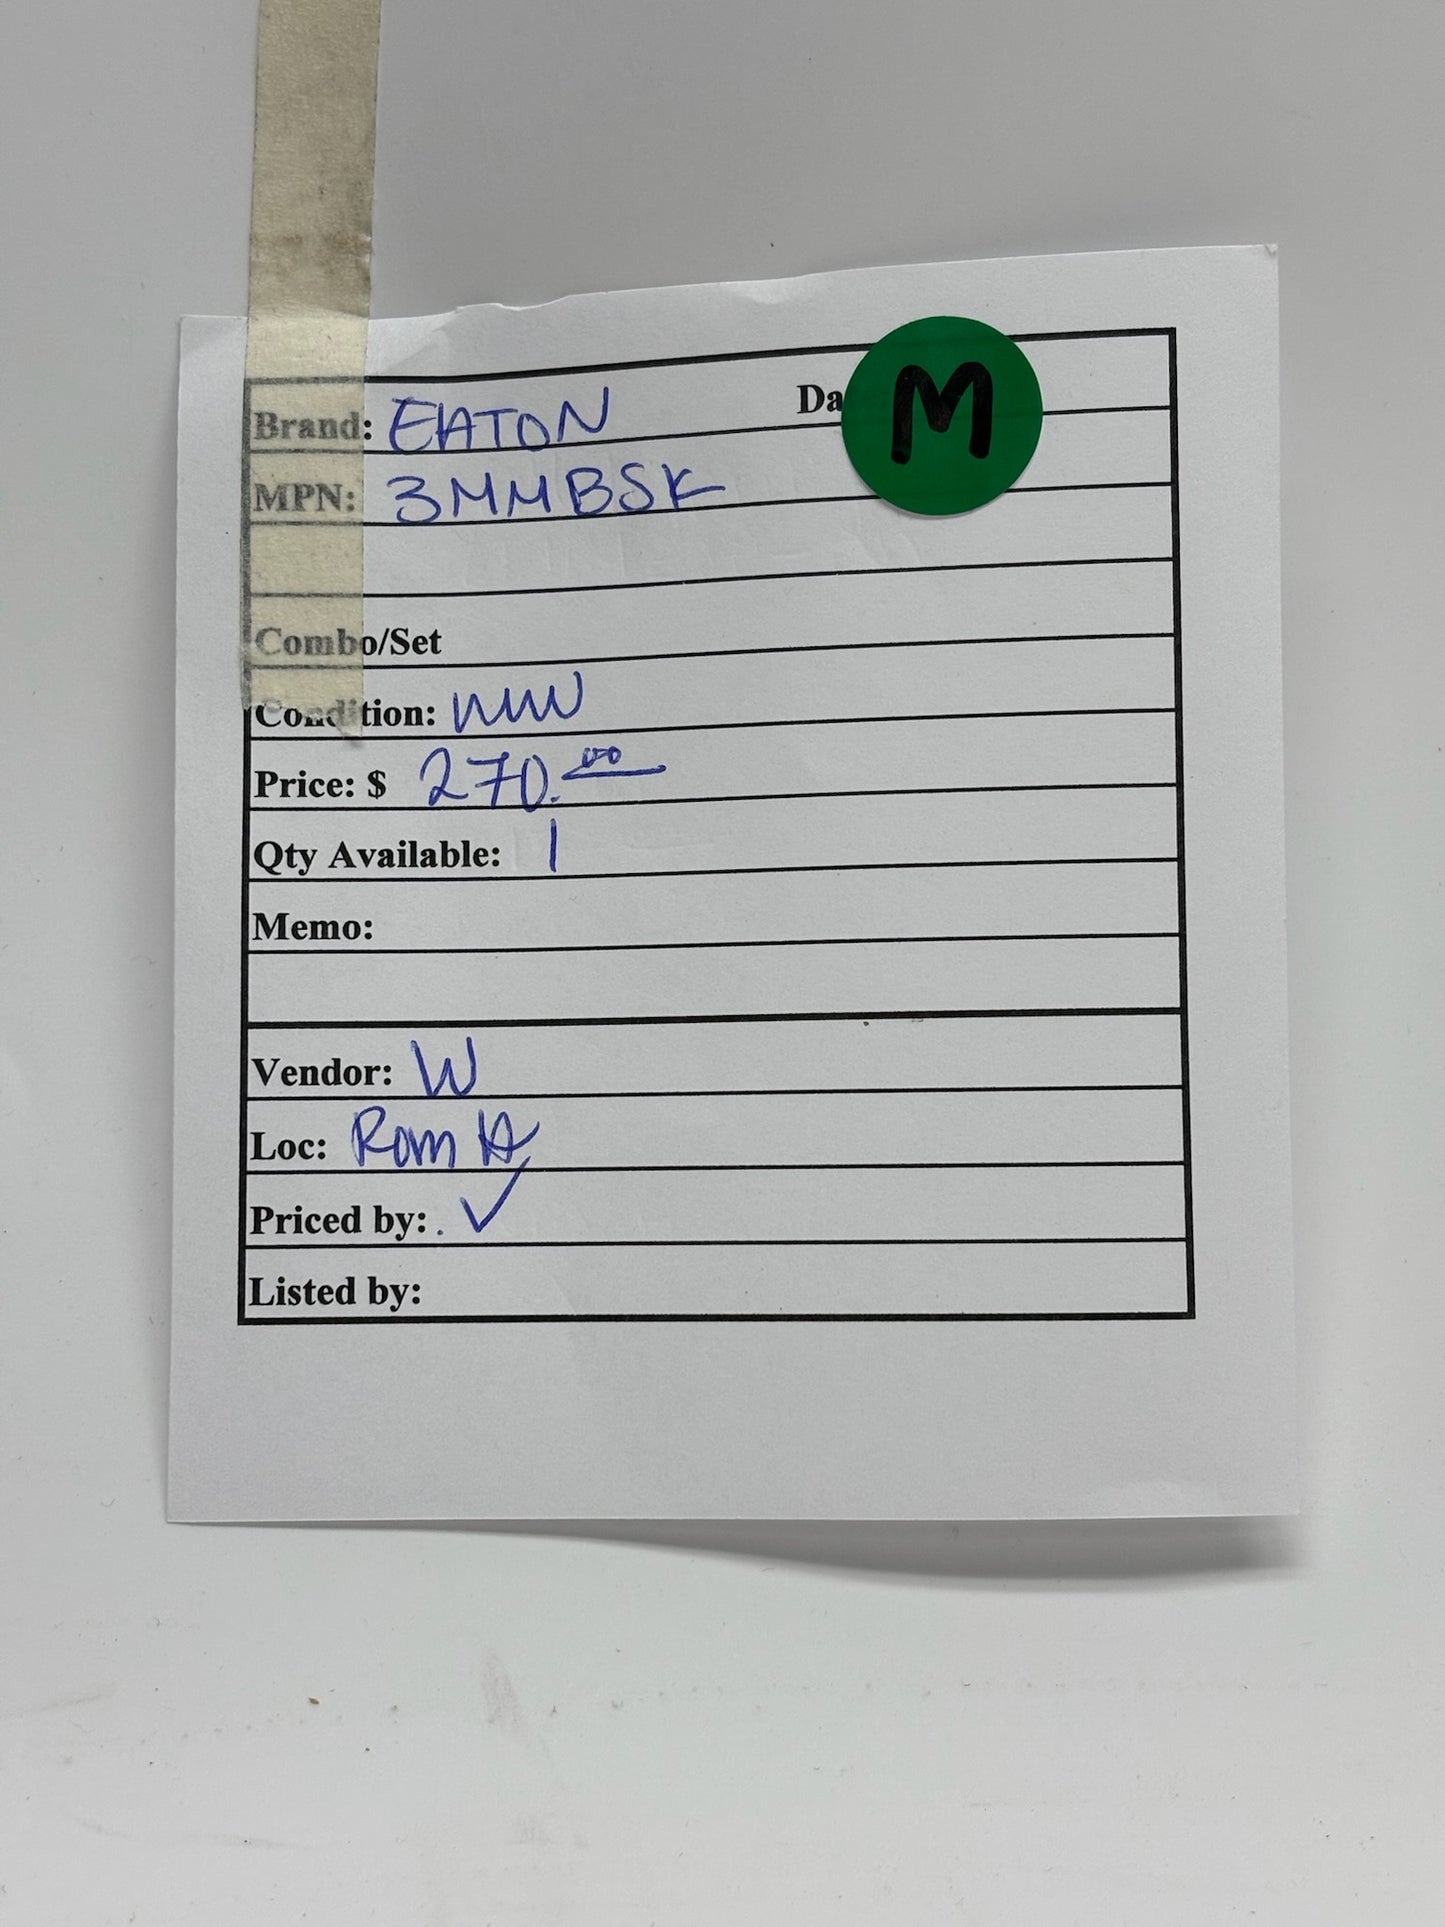 Brand: EATON Da
M
MPN: 3MMBSK
Combo/Set
Condition: NUW
Price: $ 270.00
Qty Available: 1
Memo:
Vendor: W
Loc: Rom A
Priced by: . ✓
Listed by: